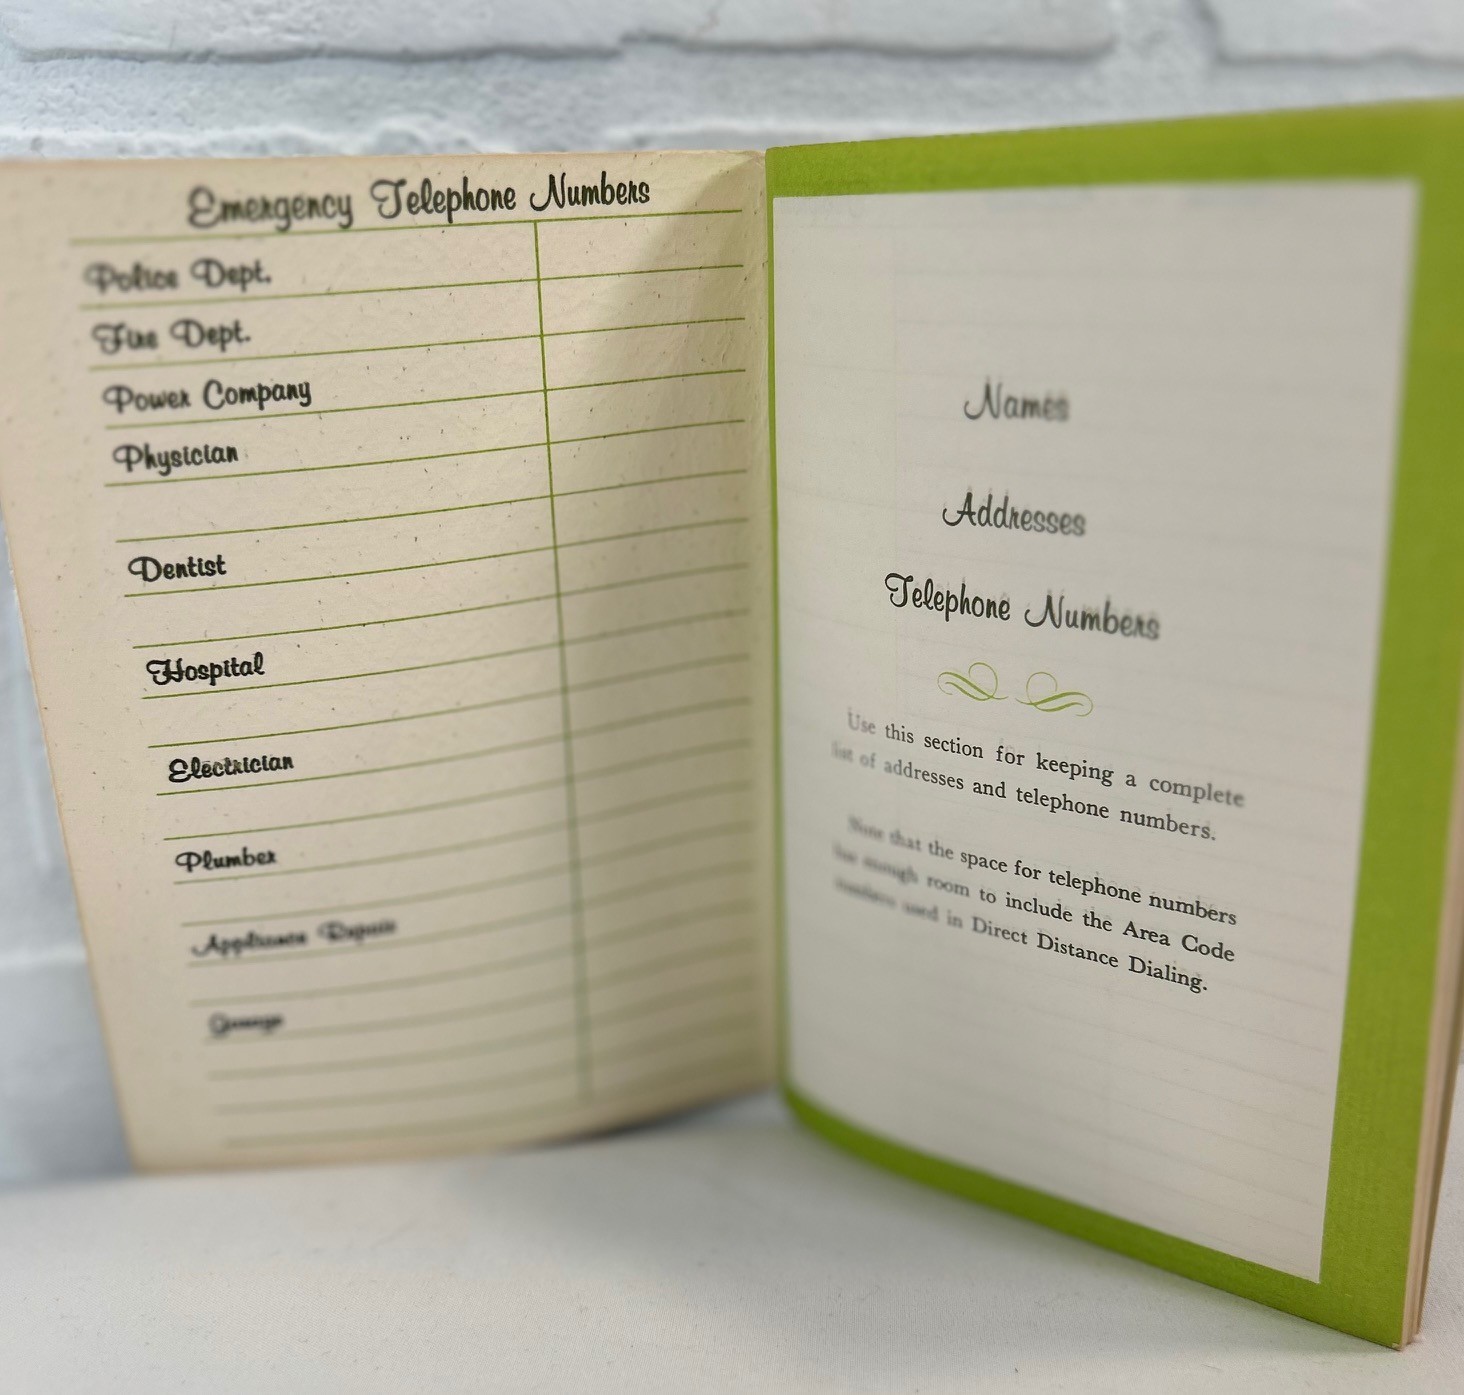 Emergency Telephone Numbers
Police Dept.
Fire Dept.
Power Company
Physician
Dentist
Hospital
Electrician
Plumber
Appliance Repair
Garage
Names
Addresses
Telephone Numbers
Use this section for keeping a complete
list of addresses and telephone numbers.
Note that the space for telephone numbers
has enough room to include the Area Code
numbers used in Direct Distance Dialing.